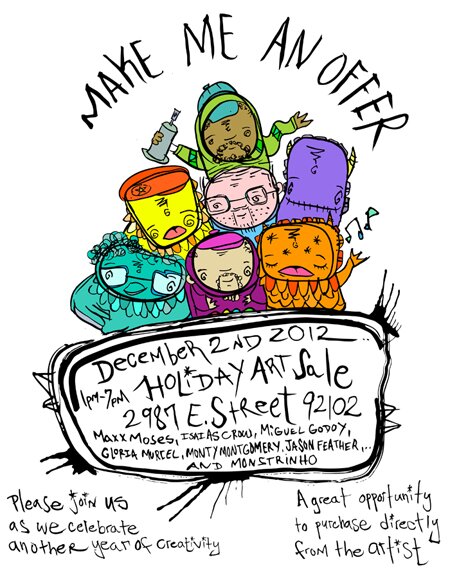 MAKE ME AN OFFER
DECEMBER 2ND 2012
1PM-7PM HOLIDAY ART SALE
2987 E. Street 92102
MAXX MOSES, ISAIAS CROW, MIGUEL GODOY,
GLORIA MURIEL, MONTY MONTGOMERY, JASON FEATHER,...
AND MONSTRINHO
Please join us
as we celebrate
another year of creativity
A great opportunity
to purchase directly
from the artist